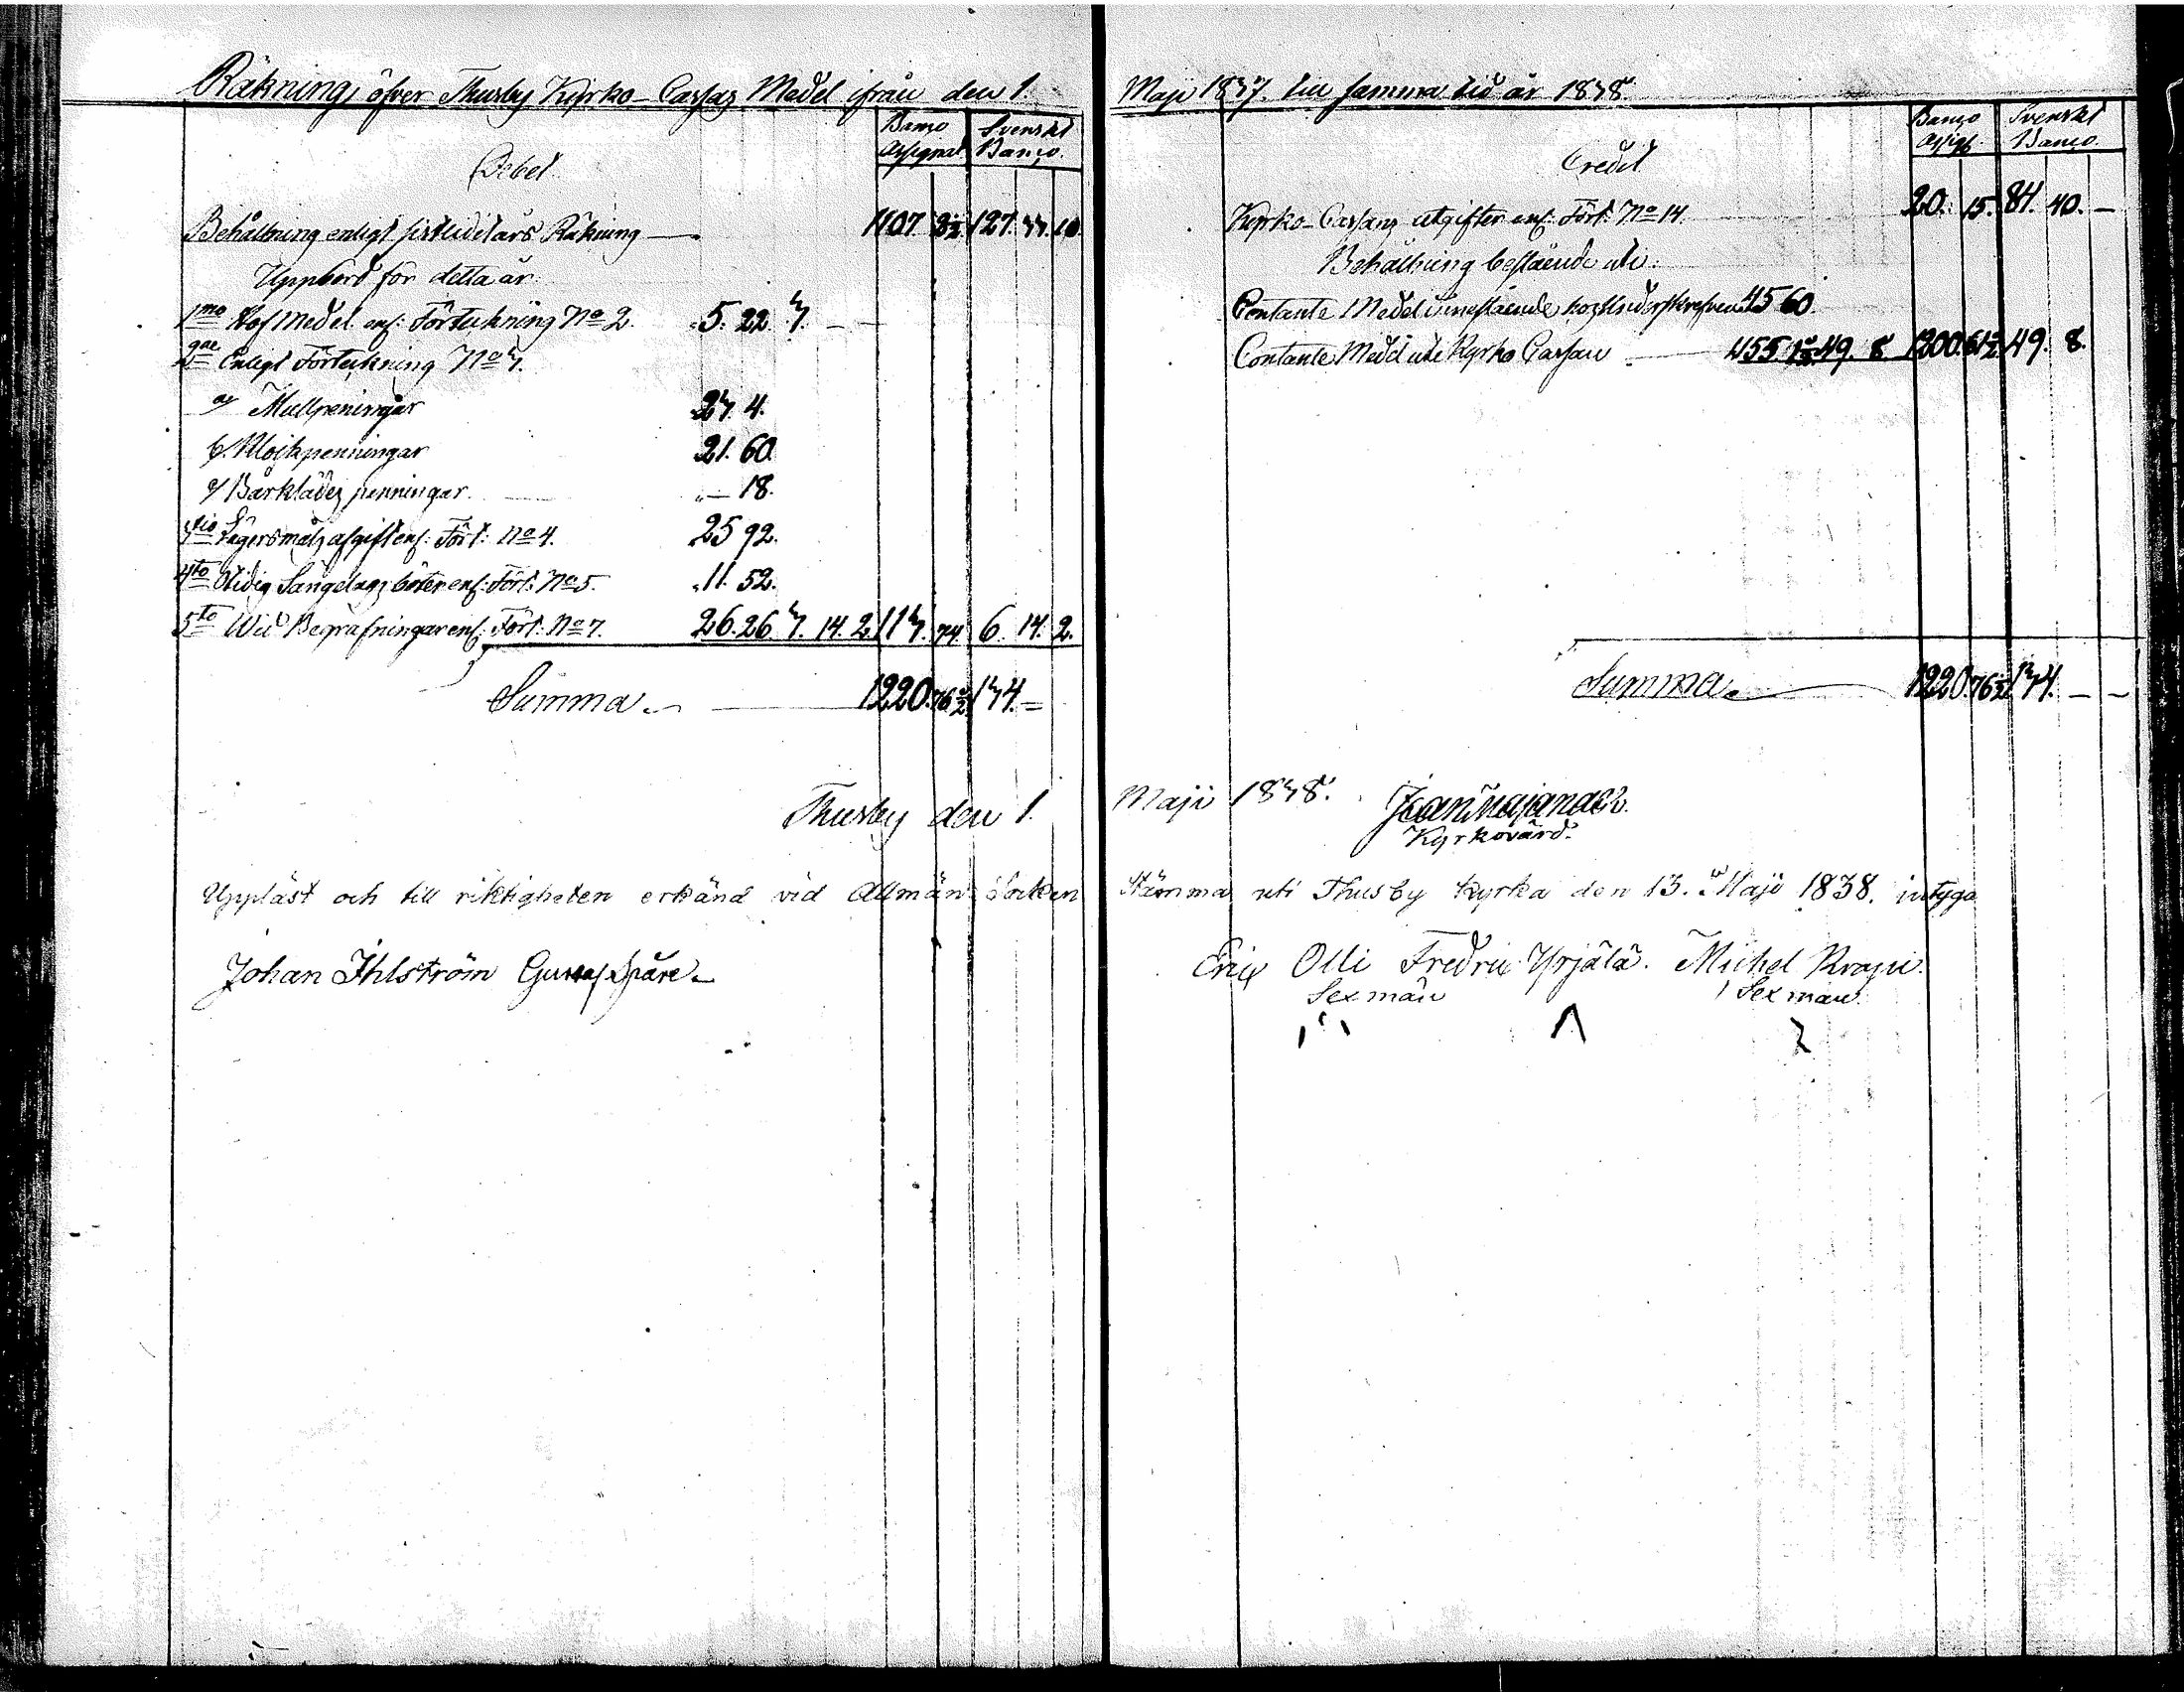 Räkning öfver Thusby Kyrko-Cassas Medel ifrån den 1.
Banco Assignat. Svenskt Banco.
Debet.
Behållning enligt sistledit års Räkning 1107. 2½ 127. 33. 10.
Uppbörd för detta år:
1mo Hof Medel enl: Förteckning No 2. 5. 22. 3. – –
2dae Enligt Förteckning No 3.
a/ Mullpeningar 23. 4.
b/ Klockpenningar 21. 60.
c/ Bårklädes penningar. – 18.
3tio Lägersmåls afgift enl: Fört: No 4. 25 92.
4to Otidig Sängelags böter enl: Fört: No 5. 11. 52.
5to Wid Begrafningar enl: Fört: No 7. 26. 26. 3. 14. 2. 113. 74. 6. 14. 2.
Summa 1220. 76½ 134. –
Thusby den 1.
Uppläst och till riktigheten erkänd vid Allmän Socken
Johan Ihlström Gustaf Spåre
Maji 1837. till samma tid år 1838.
Banco Assigt. Svenskt Banco.
Credit.
Kyrko-Cassans utgifter enl: Fört: No 14. 20. 15. 84. 40. –
Behållning bestående uti:
Contante Medel innestående hos Underskrefven 45 60.
Contante Medel uti Kyrko Cassan 455 1½ 49. 8 1200. 61½ 49. 8.
Summa 1220. 76½ 134. – –
Maji 1838.
Kyrkovärd.
Stämma uti Thusby Kyrka den 13. Maji 1838. intyga
Eric Olli Fredric Yrjälä. Michel Krapu.
Sexman Sexman